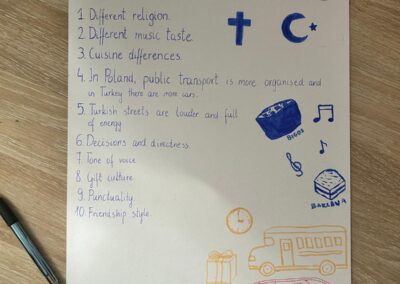 1. Different religion.
2. Different music taste.
3. Cuisine differences.
4. In Poland, public transport is more organised and
in Turkey there are more cars.
5. Turkish streets are louder and full
of energy
6. Decisions and directness.
7. Tone of voice
8. Gift culture
9. Punctuality
10. Friendship style.
BIGOS
BAKLAVA